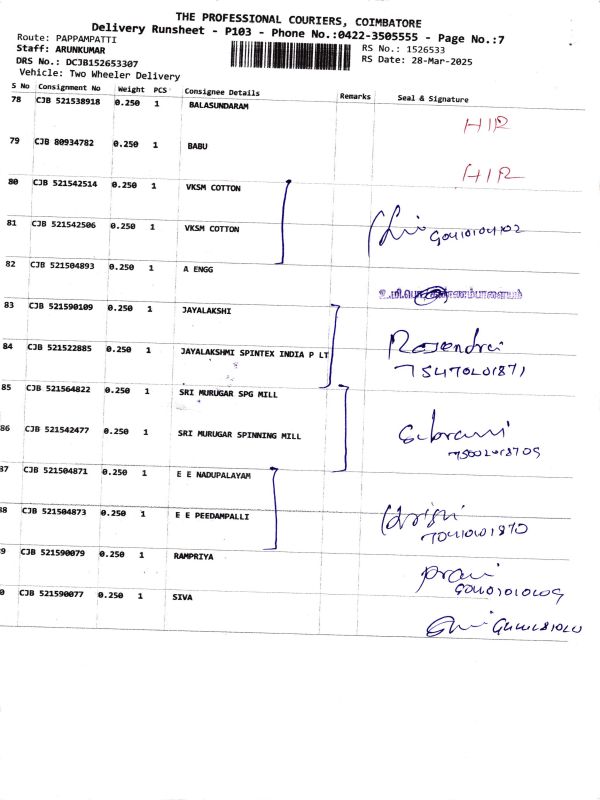 THE PROFESSIONAL COURIERS, COIMBATORE
Delivery Runsheet - P103 - Phone No.:0422-3505555 - Page No.:7
Route: PAPPAMPATTI
RS No.: 1526533
Staff: ARUNKUMAR
RS Date: 28-Mar-2025
DRS No.: DCJB152653307
Vehicle: Two Wheeler Delivery
S No Consignment No Weight PCS Consignee Details Remarks Seal & Signature
78 CJB 521538918 0.250 1 BALASUNDARAM
HIR
79 CJB 80934782 0.250 1 BABU
HIR
80 CJB 521542514 0.250 1 VKSM COTTON
81 CJB 521542506 0.250 1 VKSM COTTON
82 CJB 521504893 0.250 1 A ENGG
83 CJB 521590109 0.250 1 JAYALAKSHI
84 CJB 521522885 0.250 1 JAYALAKSHMI SPINTEX INDIA P LT
85 CJB 521564822 0.250 1 SRI MURUGAR SPG MILL
86 CJB 521542477 0.250 1 SRI MURUGAR SPINNING MILL
87 CJB 521504871 0.250 1 E E NADUPALAYAM
88 CJB 521504873 0.250 1 E E PEEDAMPALLI
9 CJB 521590079 0.250 1 RAMPRIYA
0 CJB 521590077 0.250 1 SIVA